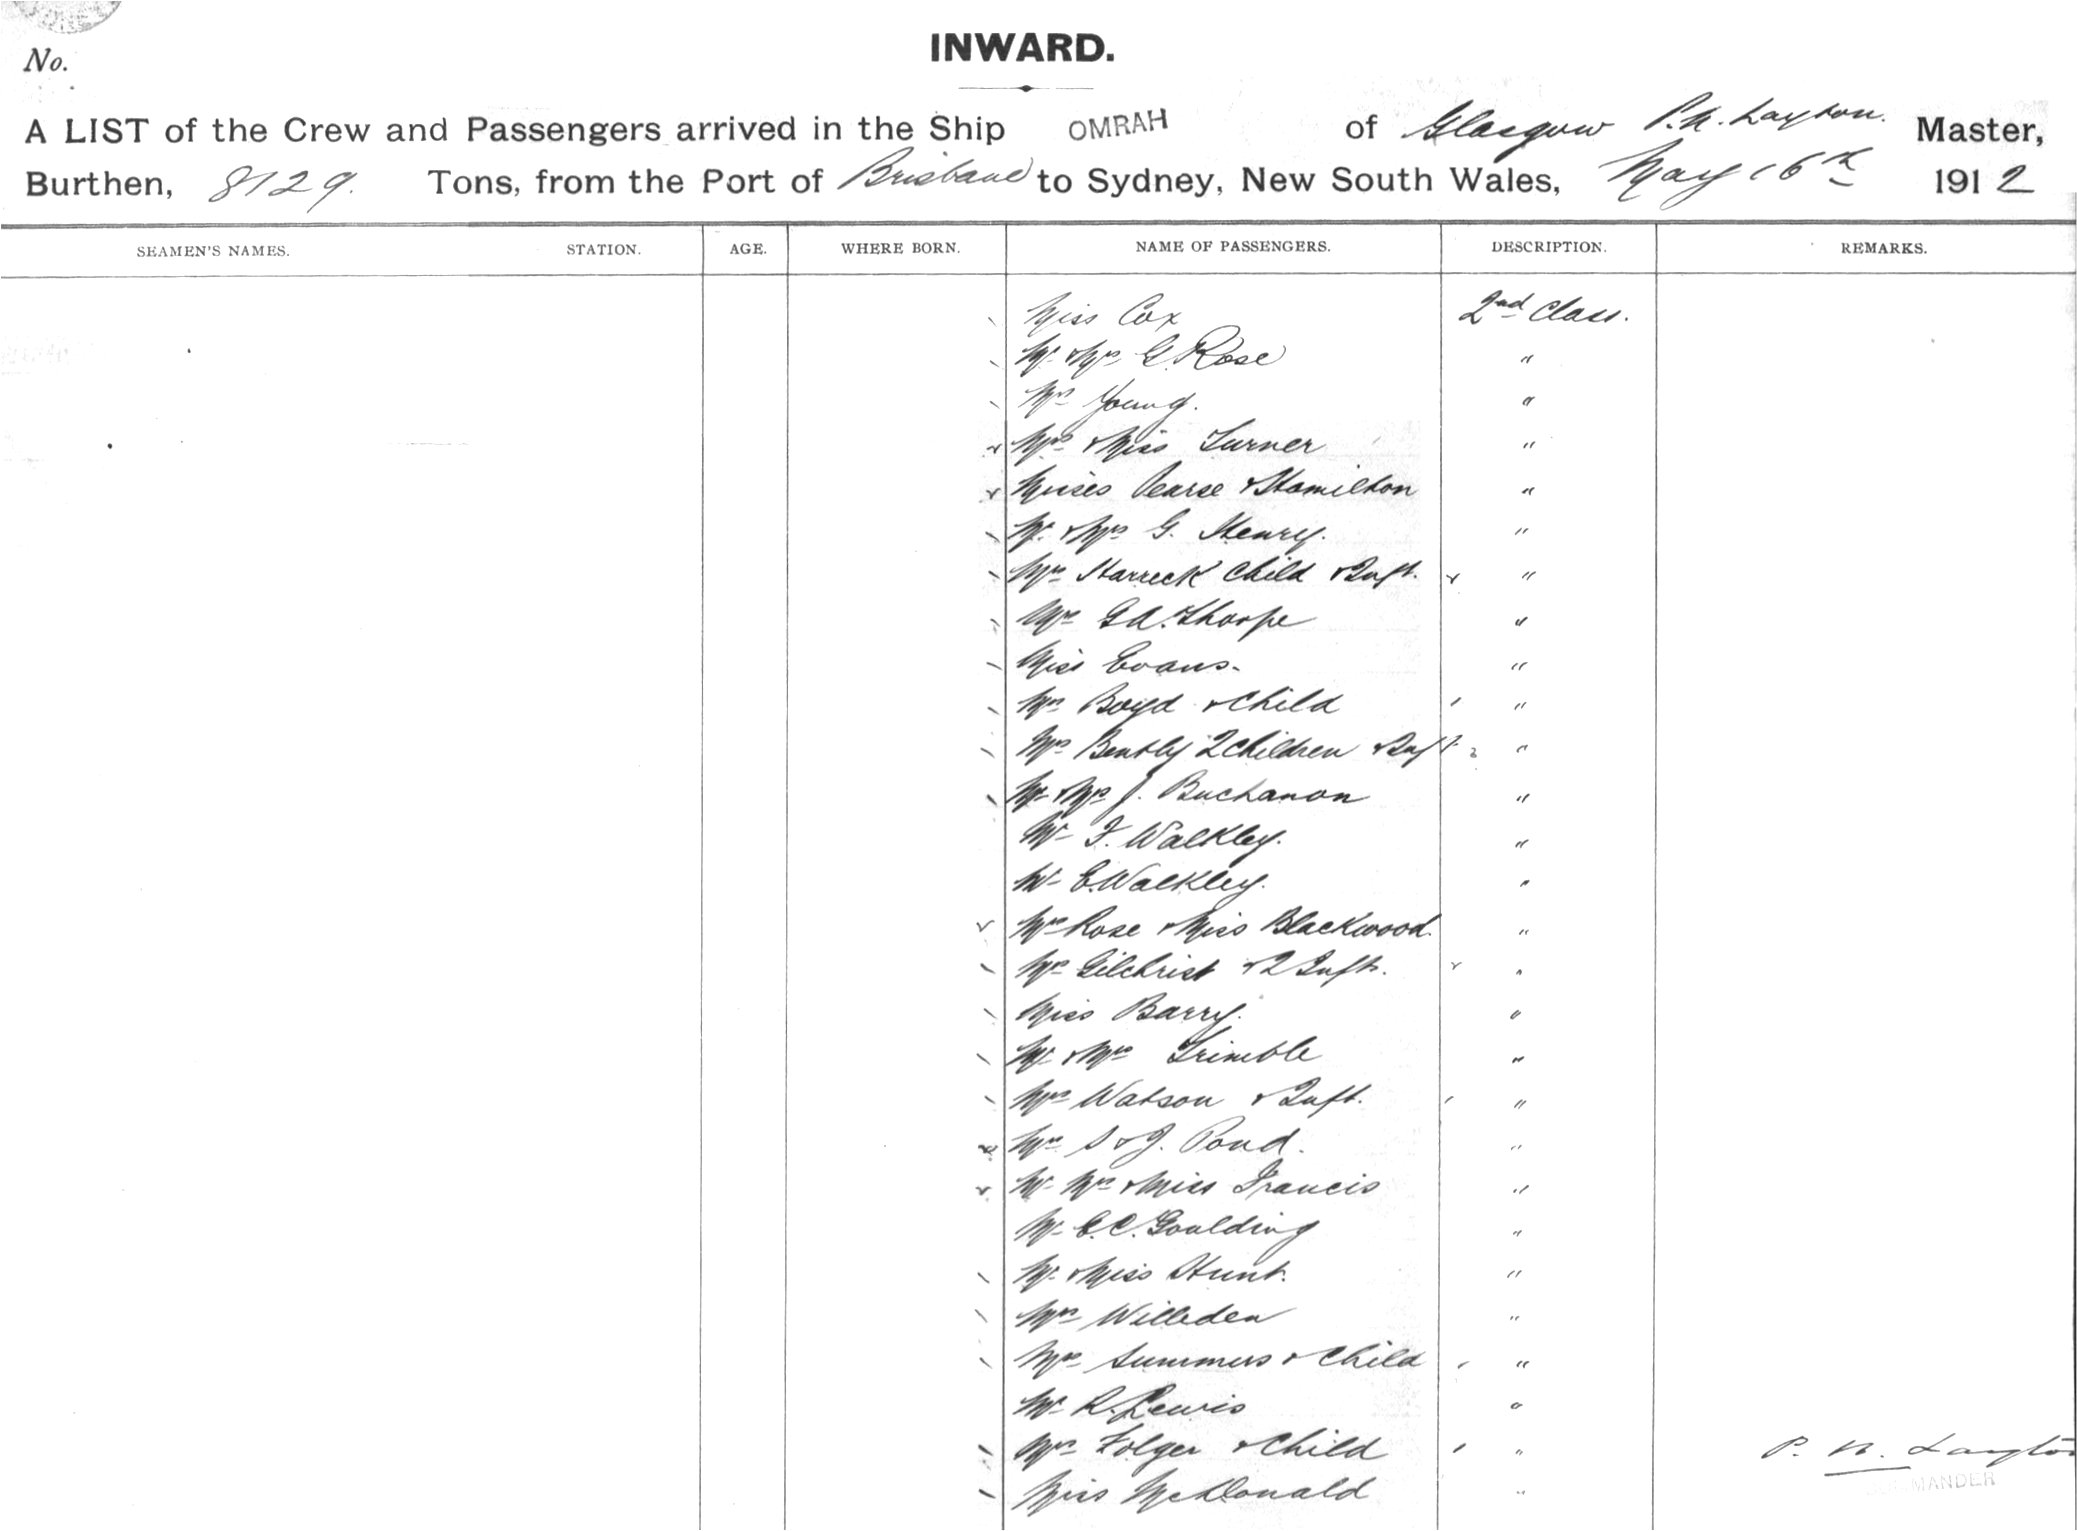 No.
INWARD.
A LIST of the Crew and Passengers arrived in the Ship OMRAH of Glasgow P. N. Layton. Master,
Burthen, 8129. Tons, from the Port of Brisbane to Sydney, New South Wales, May 16th 1912
SEAMEN'S NAMES. STATION. AGE. WHERE BORN. NAME OF PASSENGERS. DESCRIPTION. REMARKS.
Miss Cox 2nd Class.
Mr. & Mrs G. Rose "
Mrs Young. "
Mrs & Miss Turner "
Misses Pearse & Hamilton "
Mr. & Mrs G. Henry. "
Mrs Harreck Child & Inft. "
Mrs G A. Thorpe "
Miss Evans. "
Mrs Boyd & Child "
Mrs Bently 2 Children & Inft "
Mr & Mrs J. Buchanon "
Mr F. Walkley. "
Mr E. Walkley. "
Mrs Rose & Miss Blackwood. "
Mrs Gilchrist & 2 Infts. "
Miss Barry. "
Mr & Mrs Trimble "
Mrs Watson & Inft. "
S & J. Pond. "
Mr Mrs & Miss Francis "
Mr E. C. Goulding "
Mr. & Miss Hunt. "
Mrs Willeden "
Mrs Summers & Child "
Mr R. Lewis "
Mrs Folger & Child " P. N. Layton
Miss McDonald " MANDER